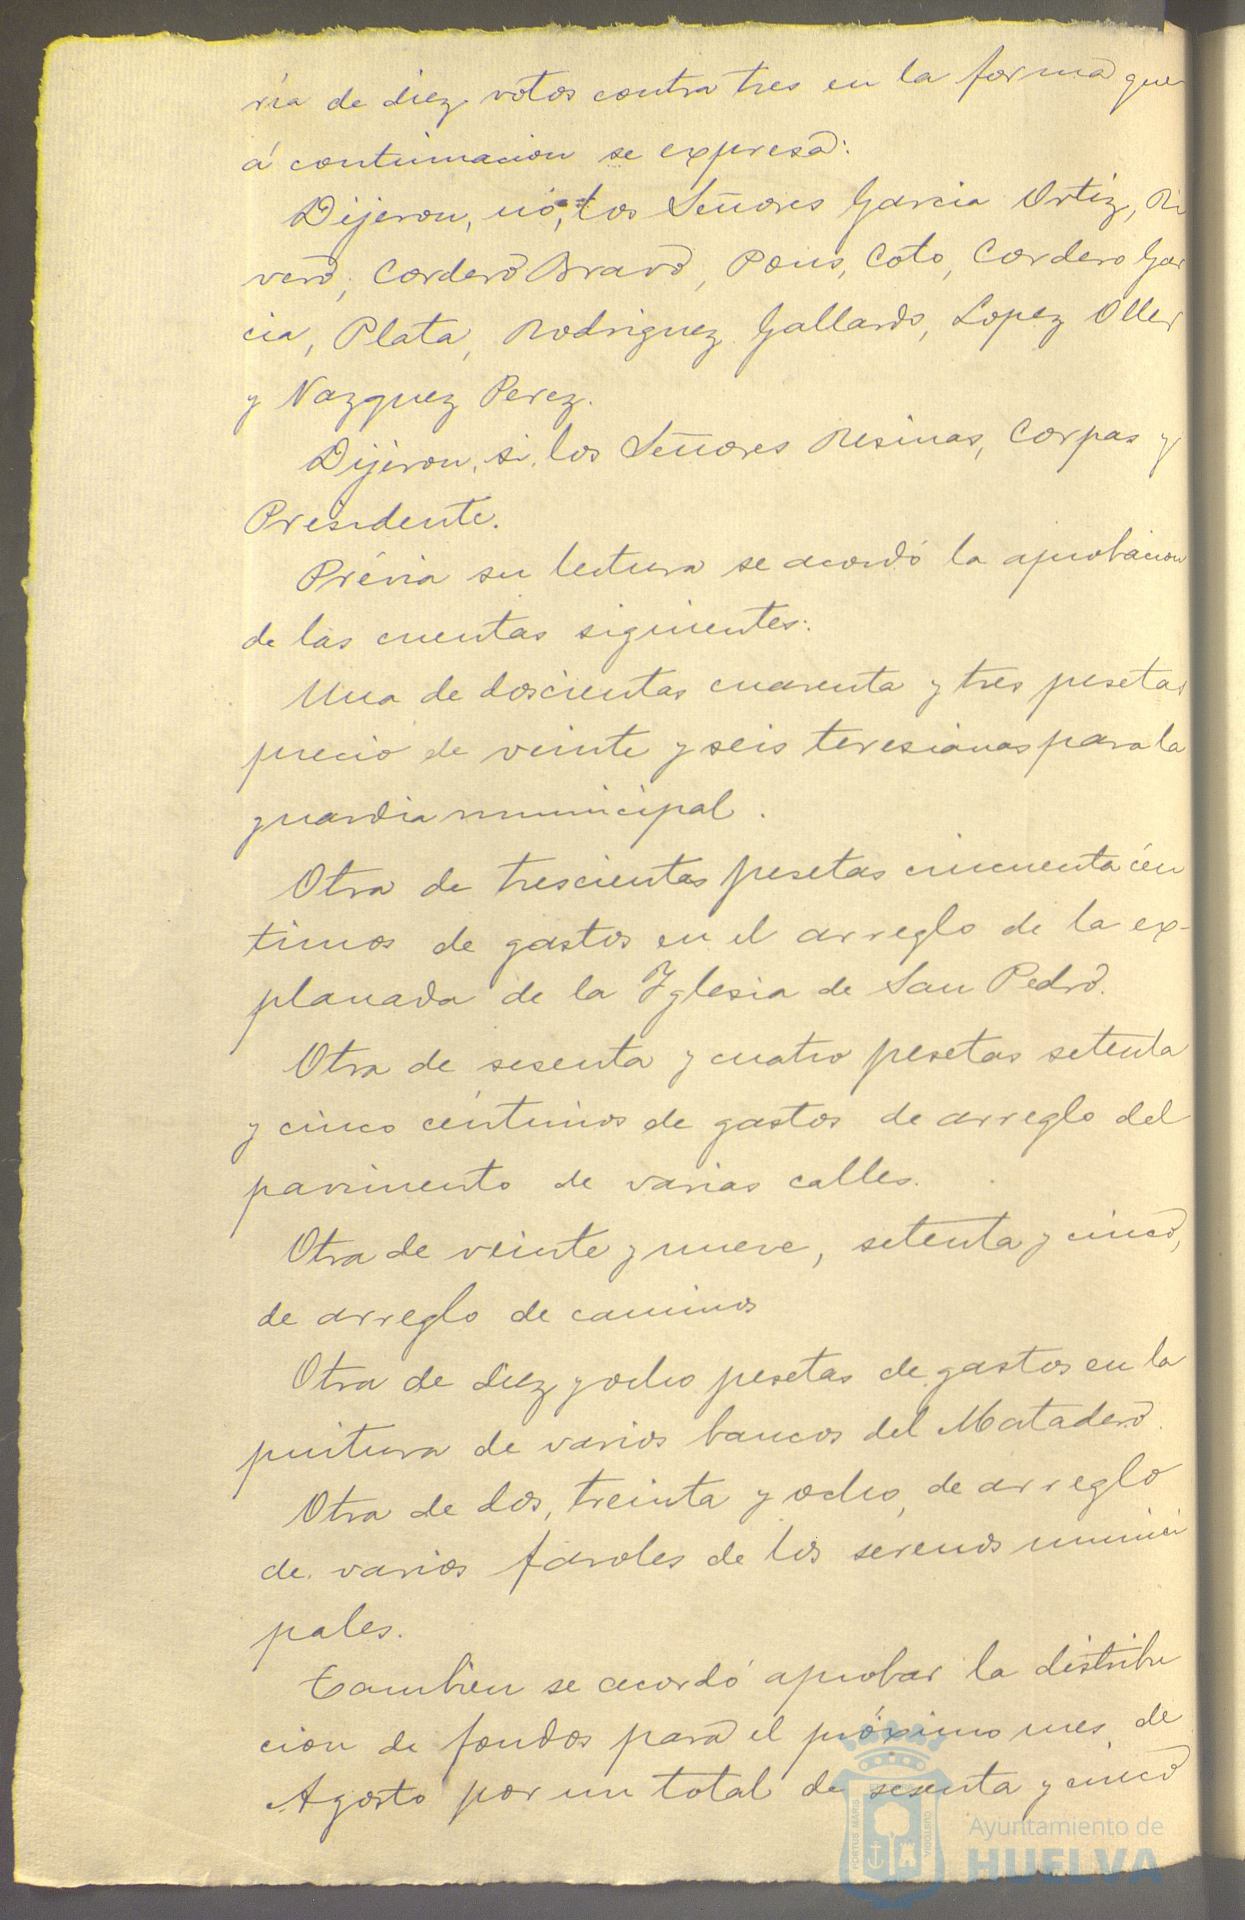 ria de diez votos contra tres en la forma que
á continuacion se expresa:
Dijeron, nó, los Señores Garcia Ortiz, Ri
vero, Cordero Bravo, Pons, Coto, Cordero Gar
cia, Plata, Rodriguez Gallardo, Lopez Oller
y Vazquez Perez.
Dijeron, si, los Señores Resinas, Corpas y
Presidente.
Prévia su lectura se acordó la aprobacion
de las cuentas siguientes:
Una de doscientas cuarenta y tres pesetas
precio de veinte y seis teresianas para la
guardia municipal.
Otra de trescientas pesetas cincuenta cén
timos de gastos en el arreglo de la ex-
planada de la Yglesia de San Pedro.
Otra de sesenta y cuatro pesetas setenta
y cinco céntimos de gastos de arreglo del
pavimento de varias calles.
Otra de veinte y nueve, setenta y cinco,
de arreglo de caminos
Otra de diez y ocho pesetas de gastos en la
pintura de varios bancos del Matadero.
Otra de dos, treinta y ocho, de arreglo
de varios faroles de los serenos munici
pales.
Tambien se acordó aprobar la distribu
cion de fondos para el próximo mes de
Agosto por un total de sesenta y cinco
PORTUS MARIS
CUSTODIA
Ayuntamiento de
HUELVA